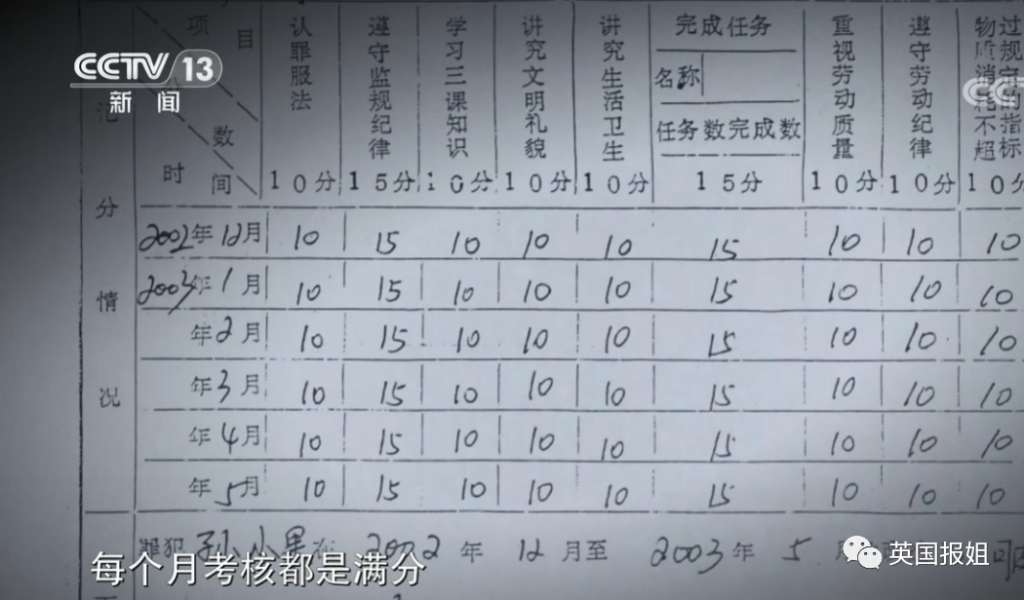 项目
CCTV 13
新闻
分数
时间
认罪服法
10分
遵守监规纪律
15分
学习三课知识
10分
讲究文明礼貌
10分
讲究生活卫生
10分
完成任务
名称
任务数完成数
15分
重视劳动质量
10分
遵守劳动纪律
10分
物质消耗不超
过规定的指标
10分
记分情况
2002年12月 10 15 10 10 10 15 10 10 10
2003年1月 10 15 10 10 10 15 10 10 10
年2月 10 15 10 10 10 15 10 10 10
年3月 10 15 10 10 10 15 10 10 10
年4月 10 15 10 10 10 15 10 10 10
年5月 10 15 10 10 10 15 10 10 10
罪犯孙小果在2002年12月至2003年5月
每个月考核都是满分
英国报姐